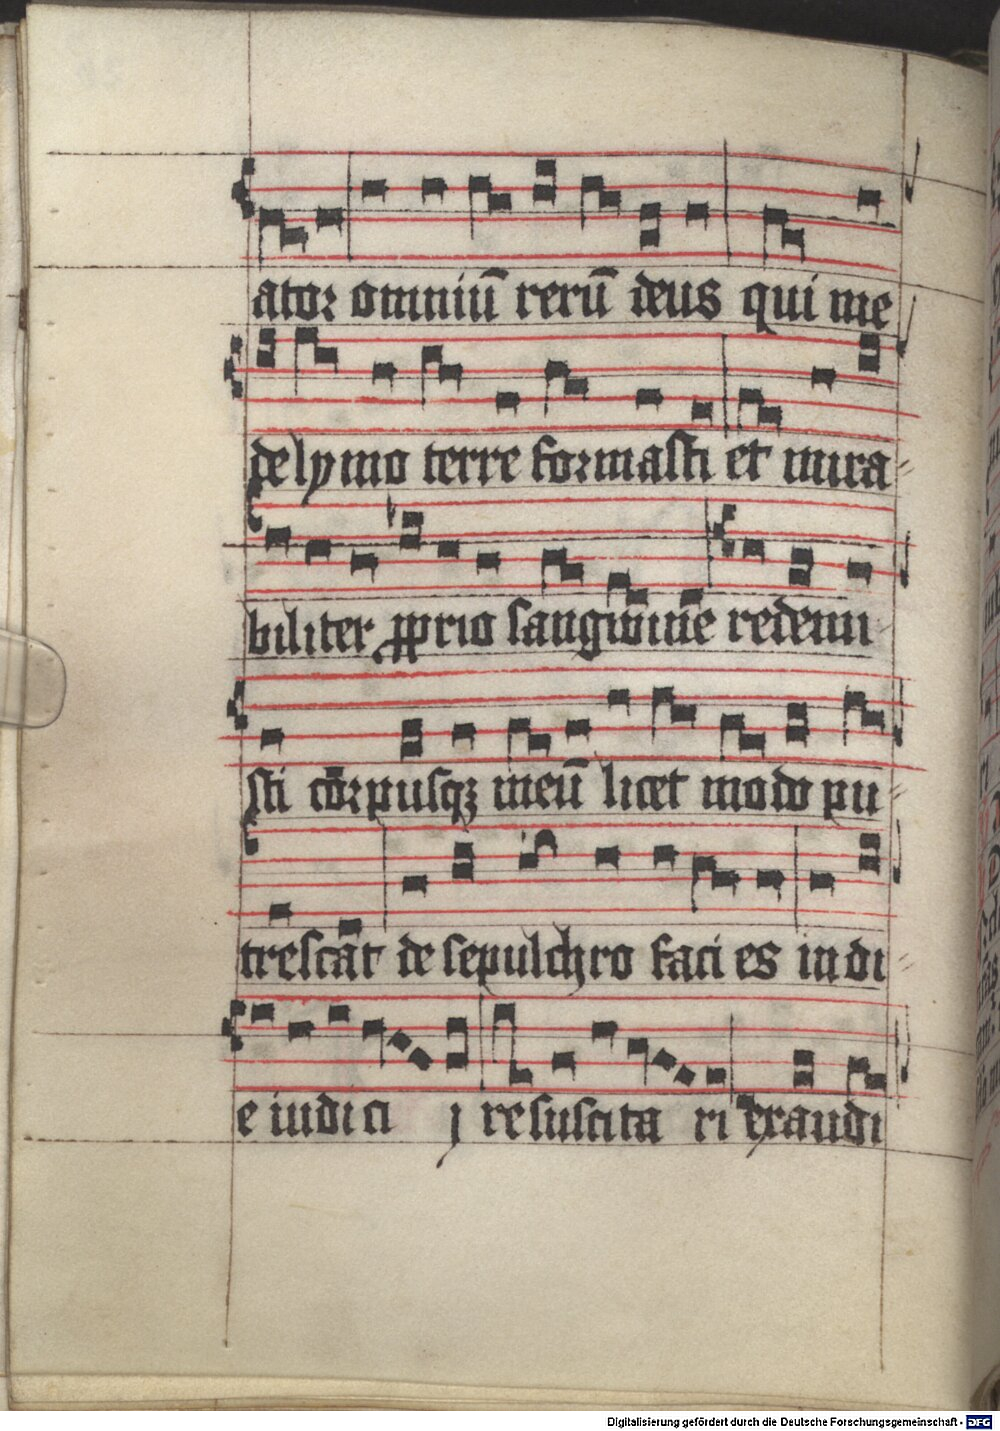 ator omniū rerū deus qui me
de lymo terre formasti et mira
biliter propprio sanguine redemi
sti corpusqz meū licet modo pu
trescāt de sepulchro faci es in di
e iudici j resuscita ri exaudi
Digitalisierung gefördert durch die Deutsche Forschungsgemeinschaft - DFG